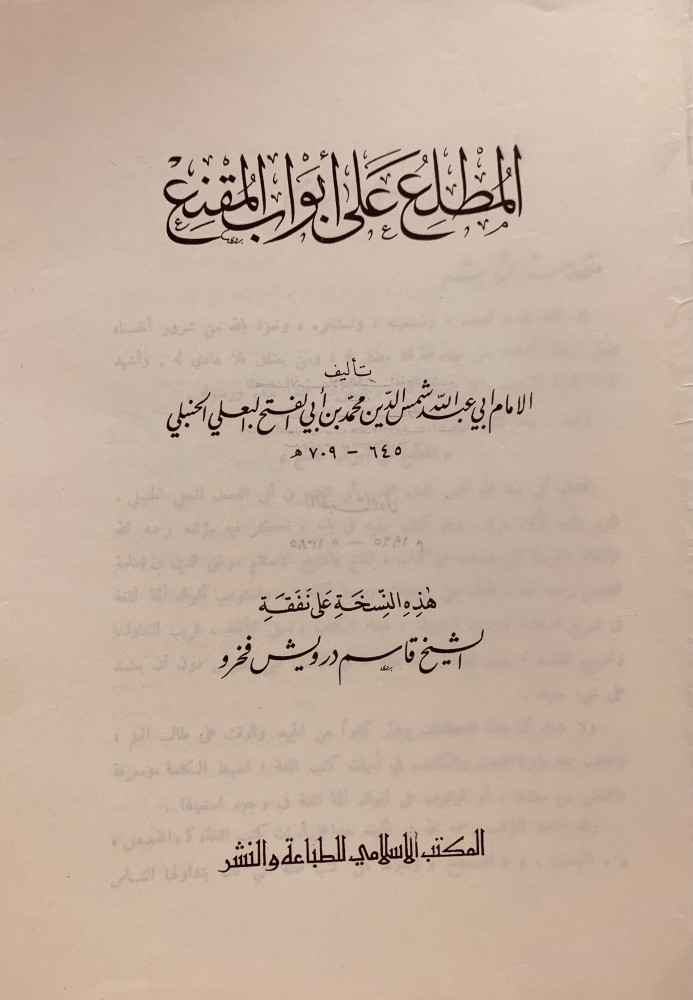 المُطْلِعُ عَلى أَبْوَابِ المُقْنِعِ
تأليف
الامام ابي عبد الله شمس الدين محمد بن أبي الفتح البعلي الحنبلي
٦٤٥ – ٧٠٩ هـ
هٰذِهِ النِّسْخَة عَلى نَفَقَةِ
الشيخ قاسم درويش فخرو
المكتب الاسلامي للطباعة والنشر